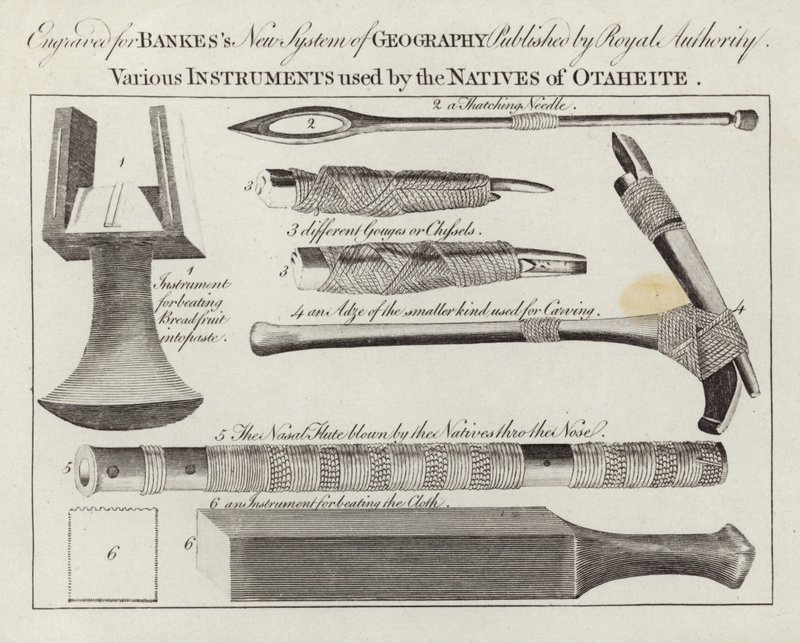 Engraved for BANKES's New System of GEOGRAPHY Published by Royal Authority.
Various INSTRUMENTS used by the NATIVES of OTAHEITE.
2 a Thatching Needle.
2
1
3
3 different Gouges or Chyssels.
3
1
Instrument
for beating
Breadfruit
into paste.
4 an Adze of the smaller kind used for Carving.
4
5 The Nasal Flute blown by the Natives thro the Nose.
5
6 an Instrument for beating the Cloth.
6
6